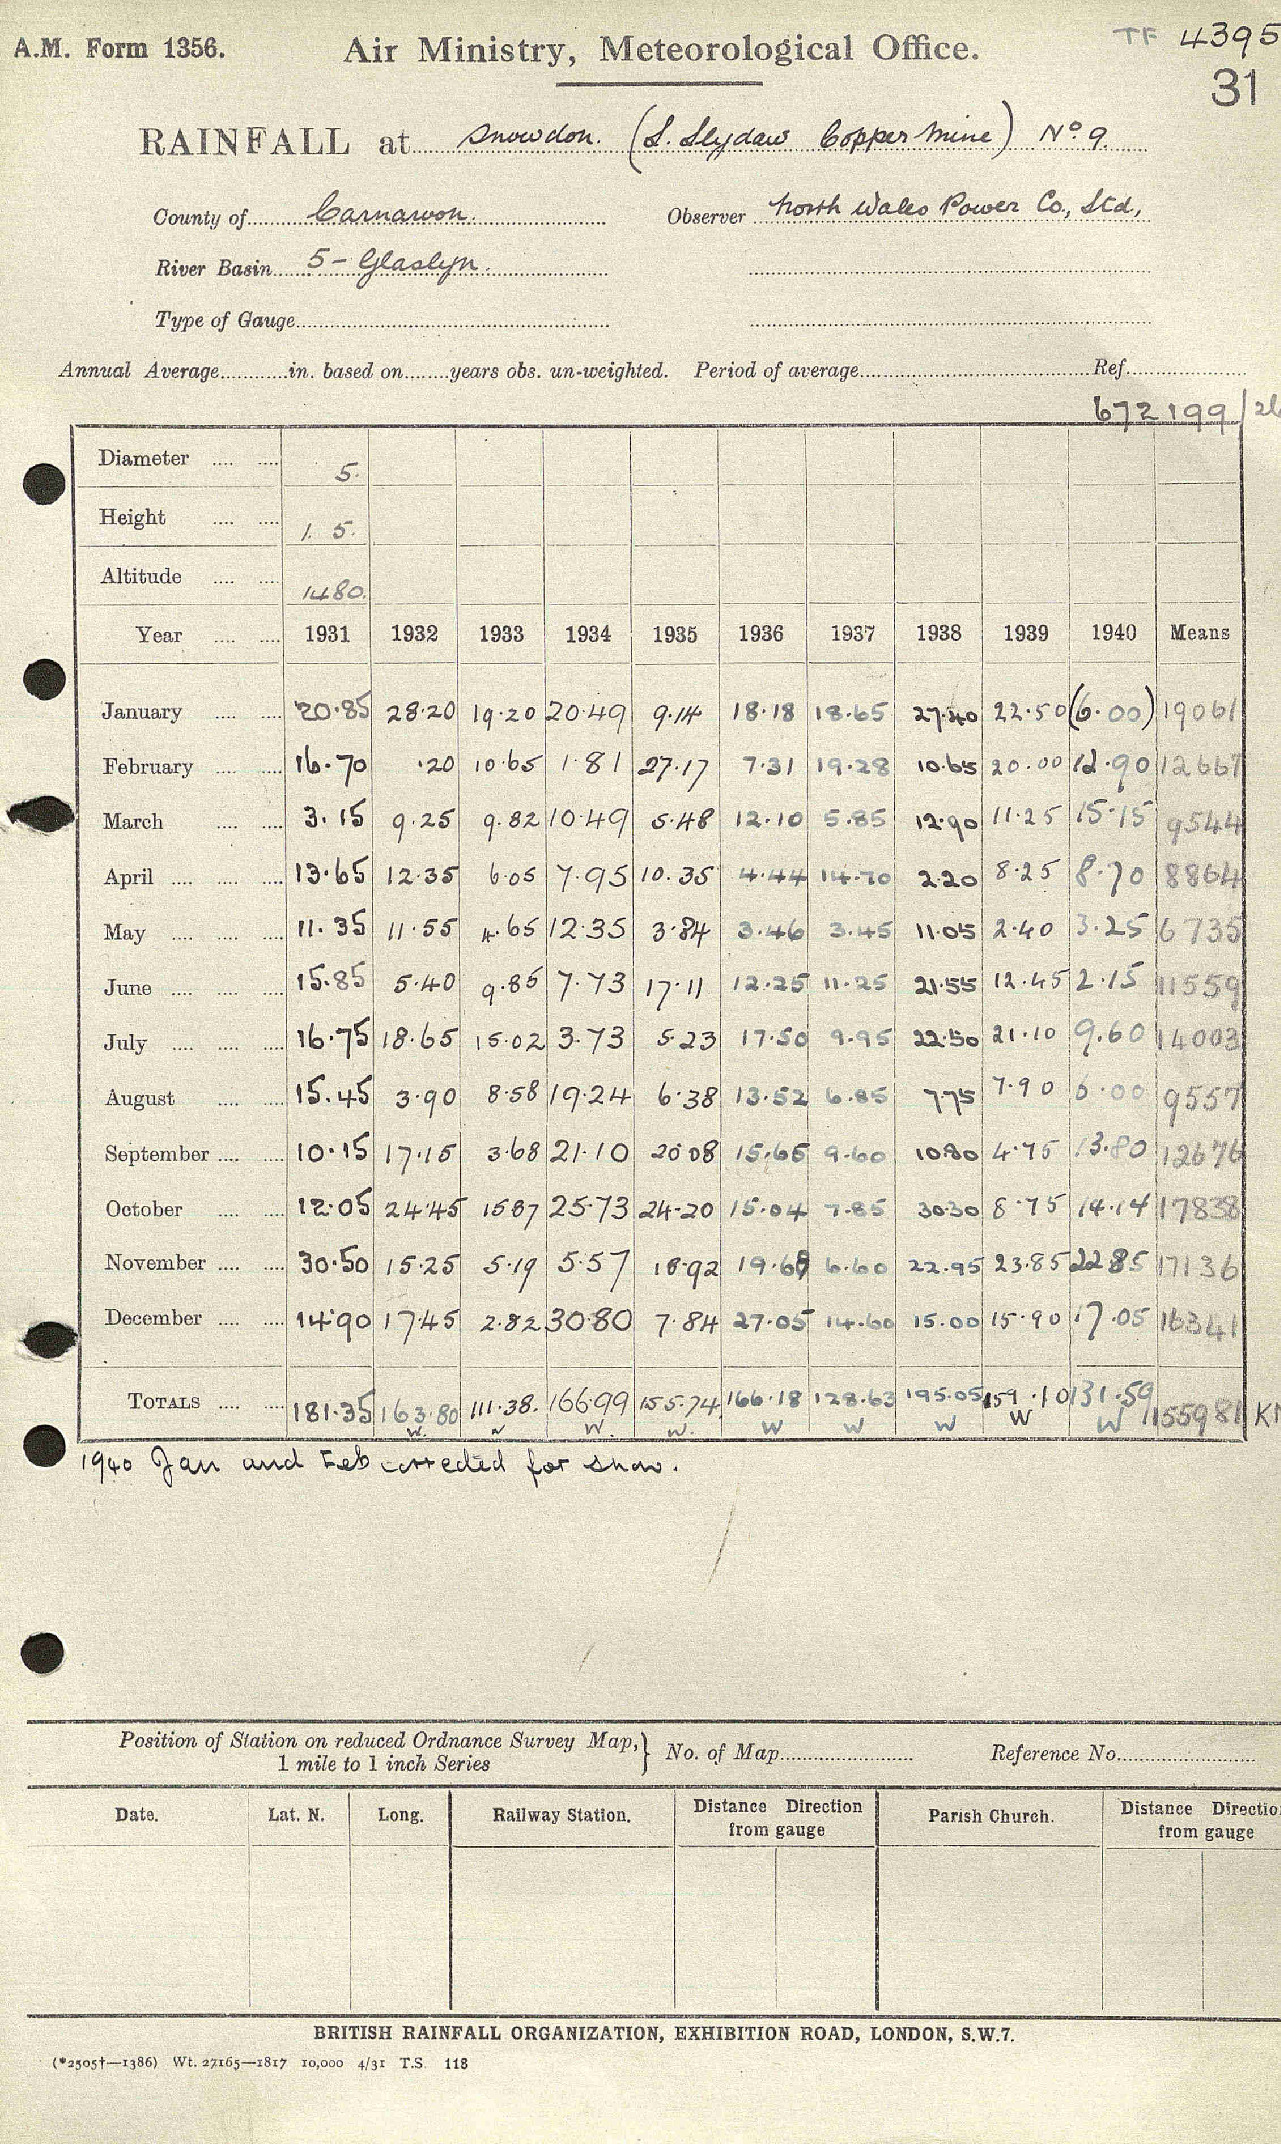 A.M. Form 1356. Air Ministry, Meteorological Office. TF 4395
31
RAINFALL at Snowdon. (L. Llydaw Copper Mine) No 9.
County of Carnarvon. Observer North Wales Power Co., Ltd,
River Basin 5 - Glaslyn.
Type of Gauge
Annual Average in. based on years obs. un-weighted. Period of average Ref.
672199/26
Diameter 5.
Height 1. 5.
Altitude 1480.
Year 1931 1932 1933 1934 1935 1936 1937 1938 1939 1940 Means
January 20.85 28.20 19.20 20.49 9.14 18.18 18.65 27.40 22.50 (6.00) 19061
February 16.70 .20 10.65 1.81 27.17 7.31 19.28 10.65 20.00 12.90 12667
March 3.15 9.25 9.82 10.49 5.48 12.10 5.85 12.90 11.25 15.15 9544
April 13.65 12.35 6.05 7.95 10.35 4.44 14.70 2.20 8.25 8.70 8864
May 11.35 11.55 4.65 12.35 3.84 3.46 3.45 11.05 2.40 3.25 6735
June 15.85 5.40 9.85 7.73 17.11 12.25 11.25 21.55 12.45 2.15 11559
July 16.75 18.65 15.02 3.73 5.23 17.50 9.95 22.50 21.10 9.60 14003
August 15.45 3.90 8.58 19.24 6.38 13.52 6.85 7.75 7.90 6.00 9557
September 10.15 17.15 3.68 21.10 20.08 15.65 9.60 10.80 4.75 13.80 12676
October 12.05 24.45 15.87 25.73 24.20 15.04 7.85 30.30 8.75 14.14 17838
November 30.50 15.25 5.19 5.57 18.92 19.68 6.60 22.95 23.85 22.85 17136
December 14.90 17.45 2.82 30.80 7.84 27.05 14.60 15.00 15.90 17.05 16341
TOTALS 181.35 163.80 111.38. 166.99 155.74 166.18 128.63 195.05 159.10 131.59 155981
W W W W W W W W W
1940 Jan and Feb corrected for snow.
Position of Station on reduced Ordnance Survey Map, 1 mile to 1 inch Series } No. of Map Reference No.
Date. Lat. N. Long. Railway Station. Distance Direction from gauge Parish Church. Distance Directio from gauge
BRITISH RAINFALL ORGANIZATION, EXHIBITION ROAD, LONDON, S.W.7.
(*2505†—1386) Wt. 27165—1817 10,000 4/31 T.S. 118